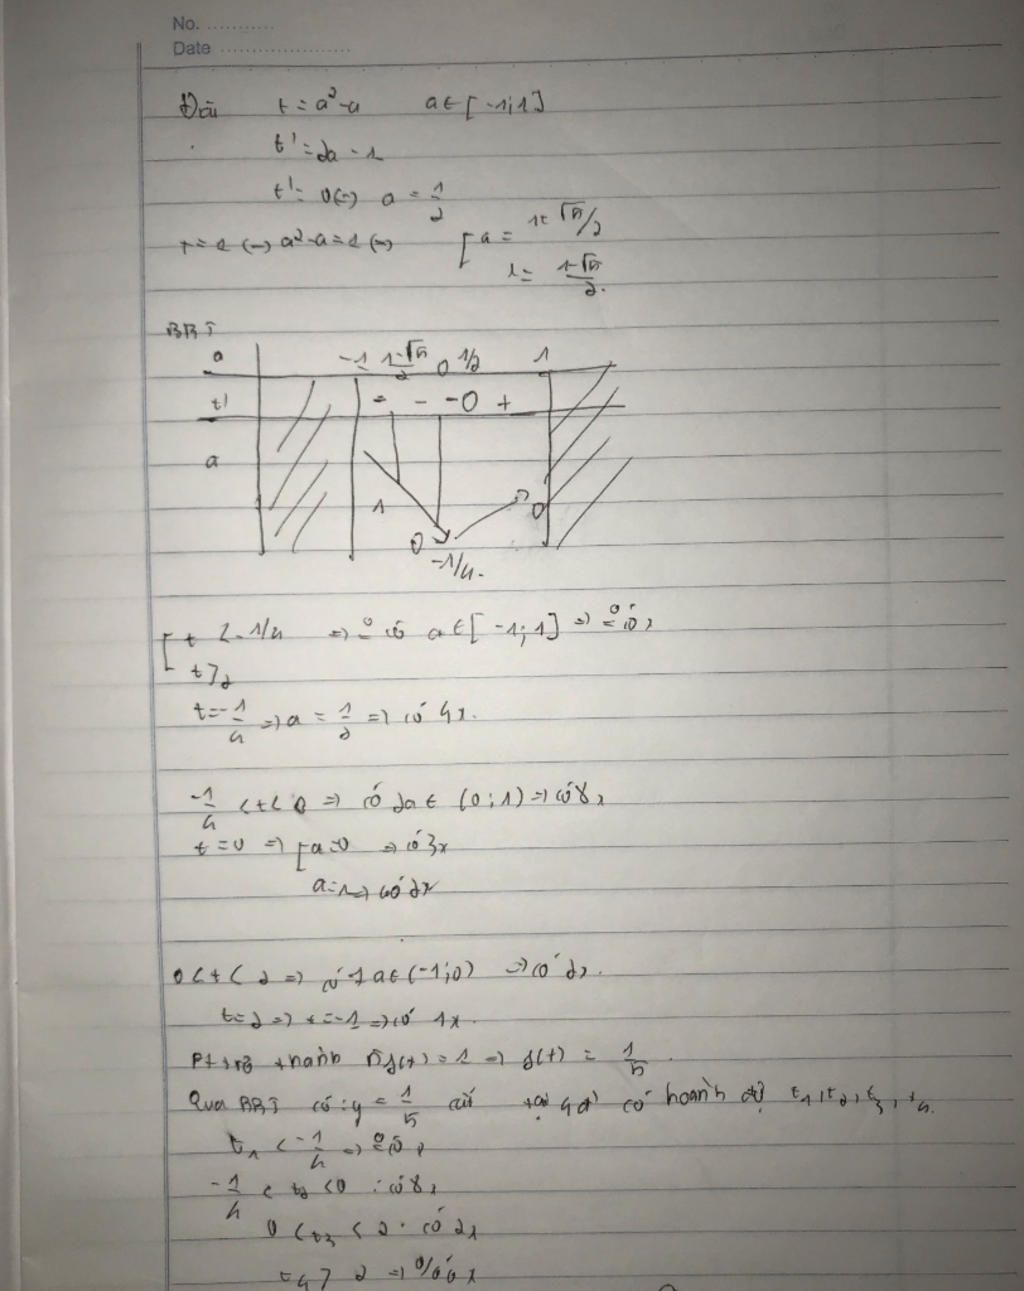 No. ...........
Date .....................
Đặt t = a² - a a ∈ [-1;1]
t' = 2a - 1
t' = 0 (=) a = 1/2
t = 1 (=) a² - a = 1 (=) [ a = 1+√5/2
1-√5/2
BBT
a -1 1-√5/2 0 1/2 1
t' - - - 0 +
a
1 0
0
-1/4.
[ t < -1/4 => 0 có a ∈ [-1;1] => 0 có x
t > 2
t = -1/4 => a = 1/2 => có 4x.
-1/4 < t < 0 => có 2a ∈ (0;1) => có 8x
t = 0 => [ a = 0 => có 3x
a = 1 => có 2x
0 < t < 2 => có 1 a ∈ (-1;0) => có 2x.
t = 2 => = -1 => có 1x.
Pt trở thành 5f(t) = 1 => f(t) = 1/5.
Qua BBT có: y = 1/5 cắt tại 4 đ' có hoành độ t₁, t₂, t₃, t₄.
t₁ < -1/4 => 0 có x
-1/4 < t₂ < 0 : có 8x
0 < t₃ < 2 : có 2x
t₄ > 2 => 0 có x